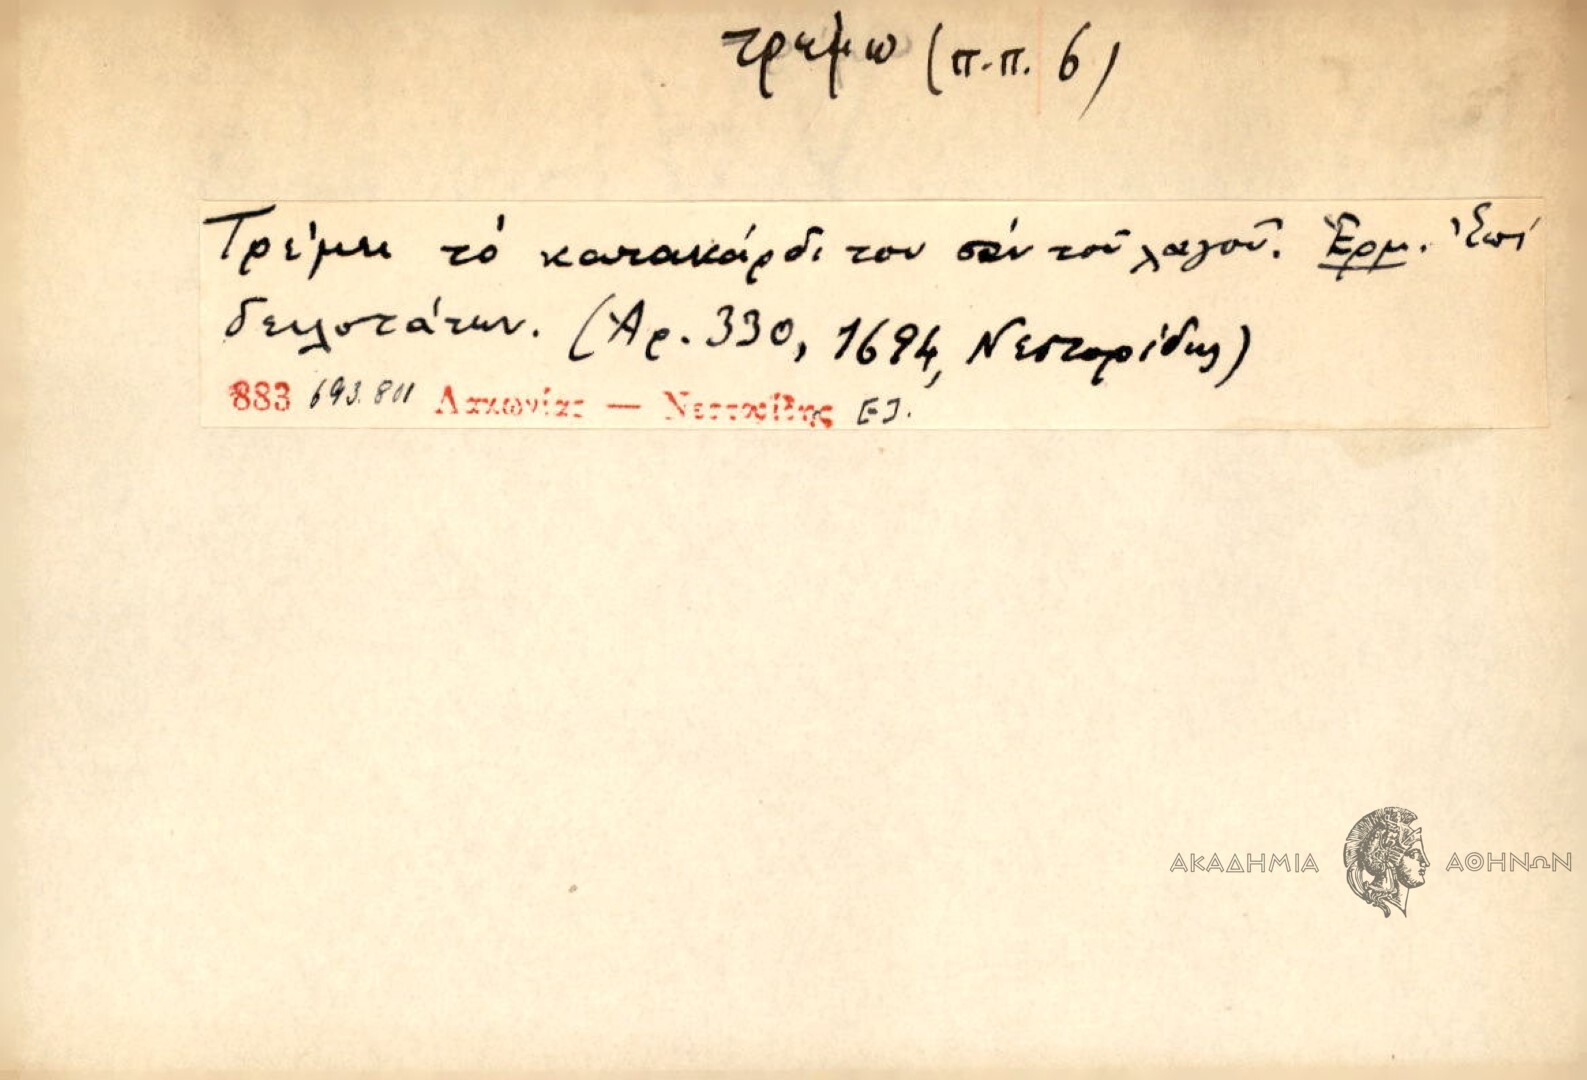 τρέμω (π.π. 6)
Τρέμει τό κατακάρδι του σάν τοῦ λαγοῦ. Ἑρμ. Ἐπί
δειλοτάτων. (Ἀρ. 330, 1694, Νεστορίδης)
883 693.801 Λακωνίας — Νεστορίδης
ΑΚΑΔΗΜΙΑ ΑΘΗΝΩΝ